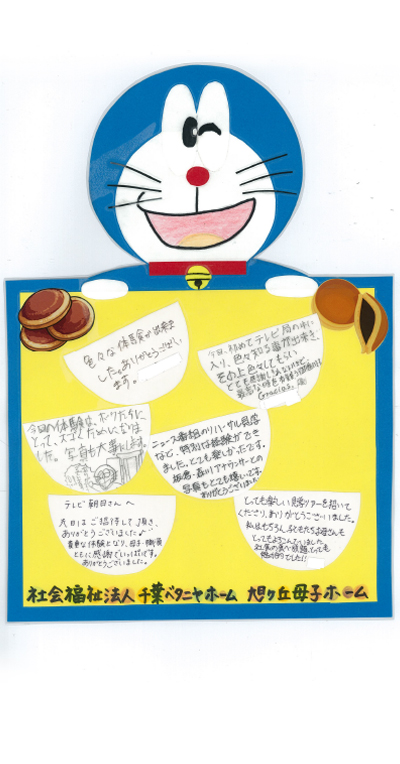 色々な体験が出来ま
した。ありがとうござい
ます。
今日、初めてテレビ局の中に
入り、色々知る事が出来き、
その上色々してもらい
とても感謝
今回の体験は、ボクたちに
とって、スゴくためになりま
した。写真も大事にします。
ニュース番組のリハーサル見学
など、特別な経験ができ
ました。とても楽しかったです。
ありがとうございました
テレビ朝日さんへ
本日はご招待して頂き、
ありがとうございました♪
貴重な体験となり、母子・職員
ともに感謝でいっぱいです。
ありがとうございました。
とても楽しい見学ツアーを招いて
くださり、ありがとうございました。
私はもちろん、子どもたちも母さんも
とってもよろこんでいました。
社会福祉法人 千葉ベタニヤホーム 旭ヶ丘母子ホーム